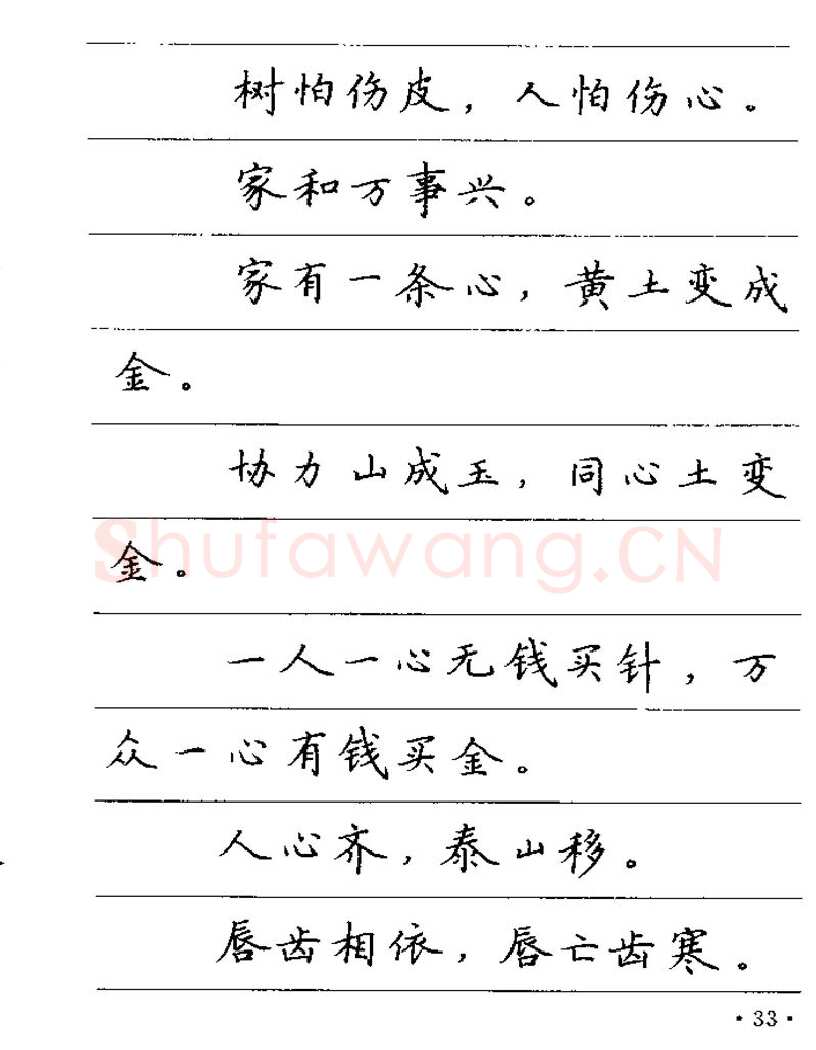 树怕伤皮，人怕伤心。
家和万事兴。
家有一条心，黄土变成
金。
协力山成玉，同心土变
金。
Shufawang.CN
一人一心无钱买针，万
众一心有钱买金。
人心齐，泰山移。
唇齿相依，唇亡齿寒。
·33·